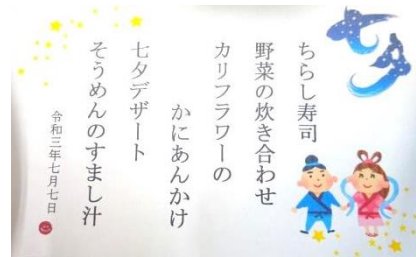 七夕
ちらし寿司
野菜の炊き合わせ
カリフラワーの
かにあんかけ
七夕デザート
そうめんのすまし汁
令和三年七月七日